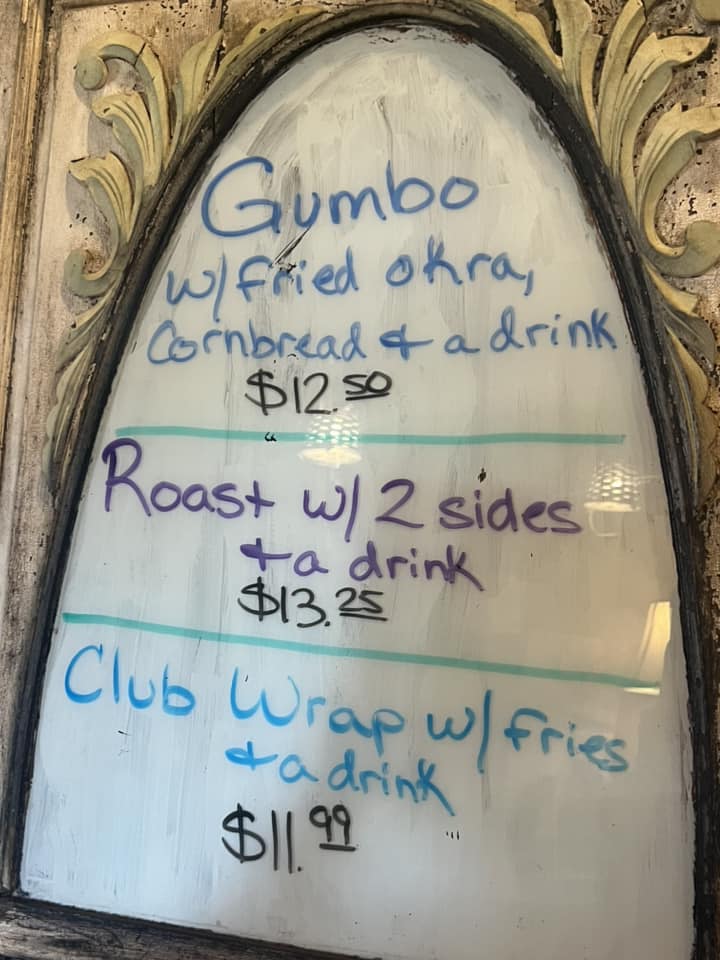 Gumbo
w/ fried okra,
Cornbread & a drink
$12.50
Roast w/ 2 sides
& a drink
$13.25
Club Wrap w/ fries
& a drink
$11.99